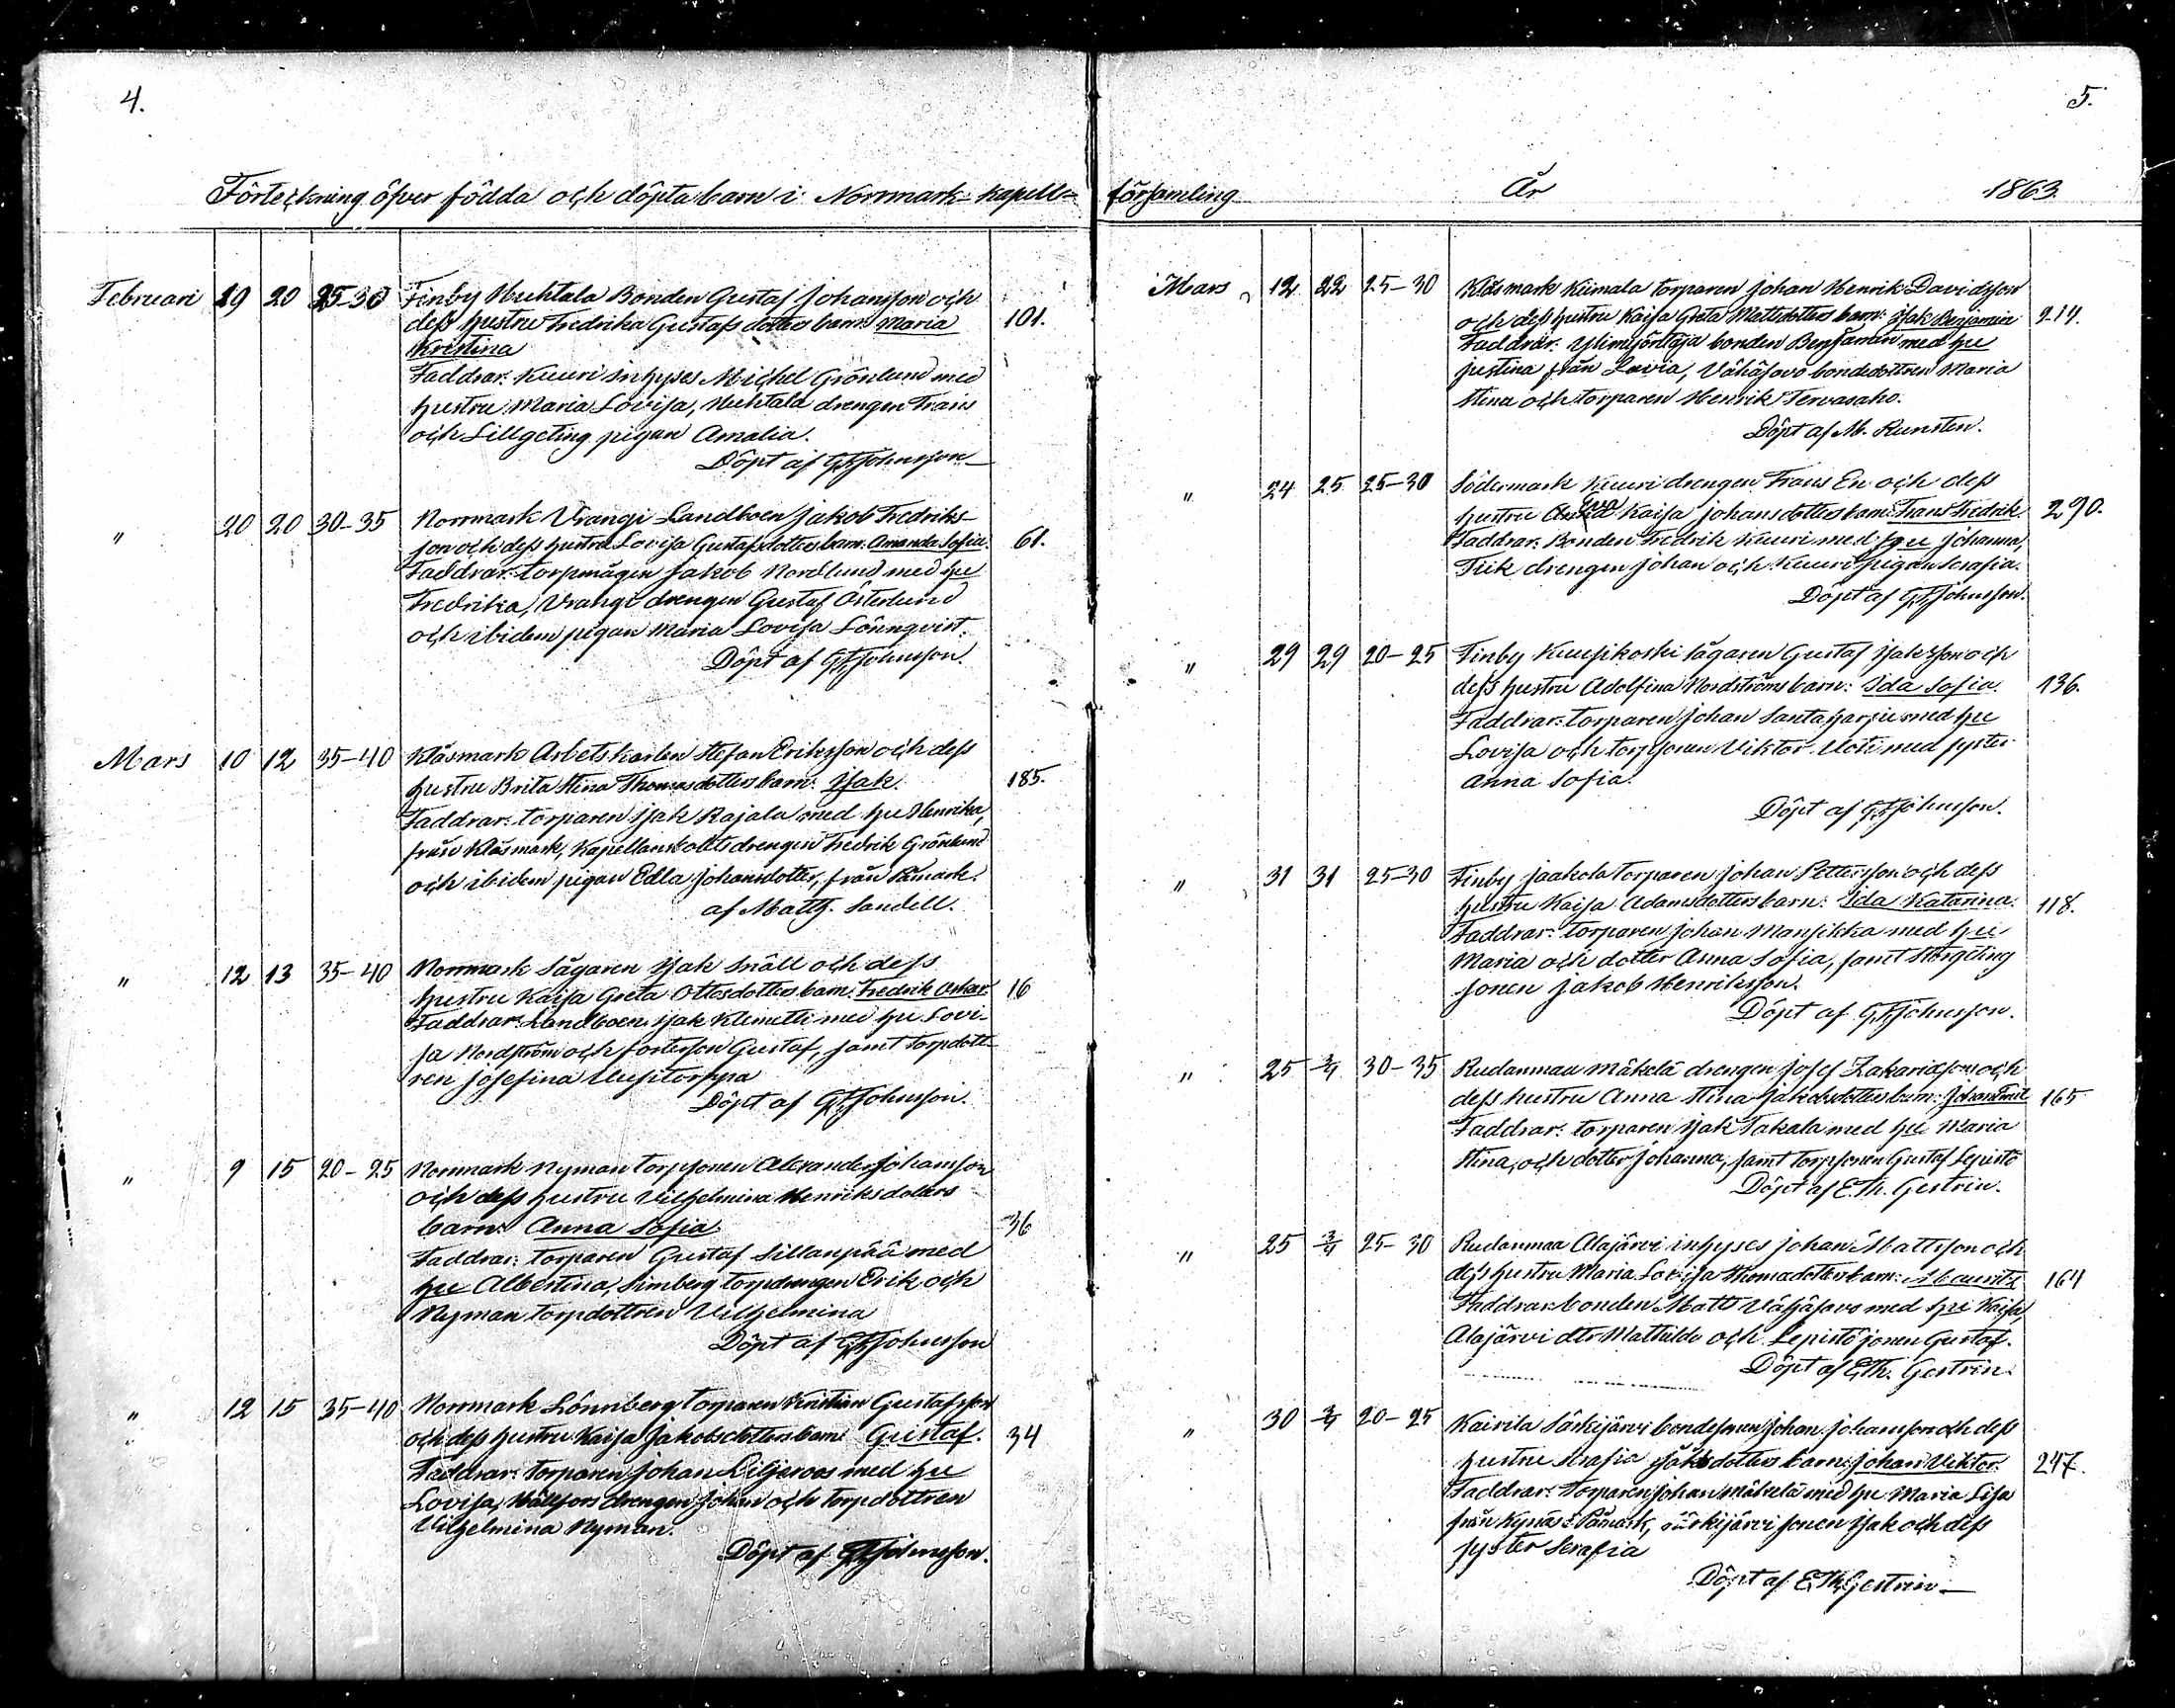 4.
Förteckning öfver födda och döpta barn i Norrmark kapell=
Februari 19 20 25-30 Finby Huhtala Bonden Gustaf Johansson och
dess hustru Fredrika Gustafsdotters barn: Maria 101.
Kristina
Faddrar: Kuuri inhyses Michel Grönlund med
hustru Maria Lovisa, Huhtala drengen Frans
och Lillgeting pigan Amalia.
Döpt af GFJohnsson
" 20 20 30-35 Norrmark Vrangi Landboen Jakob Fredriks-
son och dess hustru Lovisa Gustafsdotters barn: Amanda Sofia. 61.
Faddrar: torpmågen Jakob Nordlund med hu
Fredrika, Vrangi drengen Gustaf Österlund
och ibidem pigan Maria Lovisa Lönnqvist.
Döpt af GFJohnsson.
Mars 10 12 35-40 Klåsmark Arbetskarlen Stefan Eriksson och dess
hustru Brita Stina Thomasdotters barn: Isak. 185.
Faddrar: torparen Isak Rajala med hu Henrika,
från Klåsmark, Kapellansbolets drengen Fredrik Grönlund
och ibidem pigan Edla Johansdotter, från Påmark.
af Matth. Sandell.
" 12 13 35-40 Norrmark Sågaren Isak Snäll och dess
hustru Kaisa Greta Ottosdotters barn: Fredrik Oskar 16
Faddrar: Landboen Isak Klemetti med hu Lovi-
sa Nordström och fosterson Gustaf, samt torpdott-
ren Josefina Uusitorppa
Döpt af GFJohnsson.
" 9 15 20-25 Norrmark Nyman torpsonen Alexander Johansson
och dess hustru Vilhelmina Henriksdotters
barn: Anna Sofia. 36
Faddrar: torparen Gustaf Sillanpää med
hu Albertina, Simberg torpdrengen Erik och
Nyman torpdottren Vilhelmina
Döpt af GFJohnsson
" 12 15 35-40 Norrmark Lönnberg torparen Kristian Gustafsson
och dess hustru Kaisa Jakobsdotters barn: Gustaf. 34
Faddrar: torparen Johan Liljeroos med hu
Lovisa, drengen Johan och torpdottren
Vilhelmina Nyman.
Döpt af GFJohnsson.
5.
församling År 1863.
Mars 12 22 25-30 Klåsmark Kiimala torparen Johan Henrik Davidsson
och dess hustru Kaisa Greta Mattsdotters barn: Isak Benjamin 214.
Faddrar: bonden Benjamin med hu
Justina från Lavia, Vähäsavo bondedottren Maria
Stina och torparen Henrik Tervasaho.
Döpt af M. Runsten.
" 24 25 25-30 Södermark Kuuri drengen Frans En och dess
hustru Eva Kaisa Johansdotters barn: Frans Fredrik. 290.
Faddrar: Bonden Fredrik Kuuri med hu Johanna,
Fiik drengen Johan och Kuuri pigan Serafia.
Döpt af GFJohnsson.
" 29 29 20-25 Finby Kuusikoski sågaren Gustaf Isaksson och
dess hustru Adolfina Nordströms barn: Ida Sofia. 136.
Faddrar: torparen Johan Santaharju med hu
Lovisa och torpsonen Viktor Uoti med syster
Anna Sofia.
Döpt af GFJohnsson.
" 31 31 25-30 Finby Jaakola torparen Johan Pettersson och dess
hustru Kaisa Adamsdotters barn: Ida Katarina. 118.
Faddrar: torparen Johan Mansikka med hu
Maria och dotter Anna Sofia, samt Storgeting
sonen Jakob Henriksson.
Döpt af GFJohnsson.
" 25 3/4 30-35 Rudanmaa Mäkelä drengen Josef Zakariasson och
dess hustru Anna Stina Jakobsdotters barn: Johan Emil 165
Faddrar: torparen Isak Takala med hu Maria
Stina, och dotter Johanna, samt torpsonen Gustaf Lepistö
Döpt af E.Th. Gestrin.
" 25 3/4 25-30 Rudanmaa Alajärvi inhyses Johan Mattsson och
dess hustru Maria Lovisa Thomadotters barn: Mauritz 164
Faddrar: bonden Matts Vähäsavo med hu Kaisa,
Alajärvi dtr Mathilda och Lepistö sonen Gustaf.
Döpt af E.Th. Gestrin.
" 30 3/4 20-25 Kairila Särkijärvi bondesonen Johan Johansson och dess
hustru Serafia Isaksdotters barn: Johan Viktor. 247.
Faddrar: torparen Johan Mäkelä med hu Maria Lisa
från Kynäs i Påmark, Särkijärvi sonen Isak och dess
syster Serafia
Döpt af E.Th. Gestrin